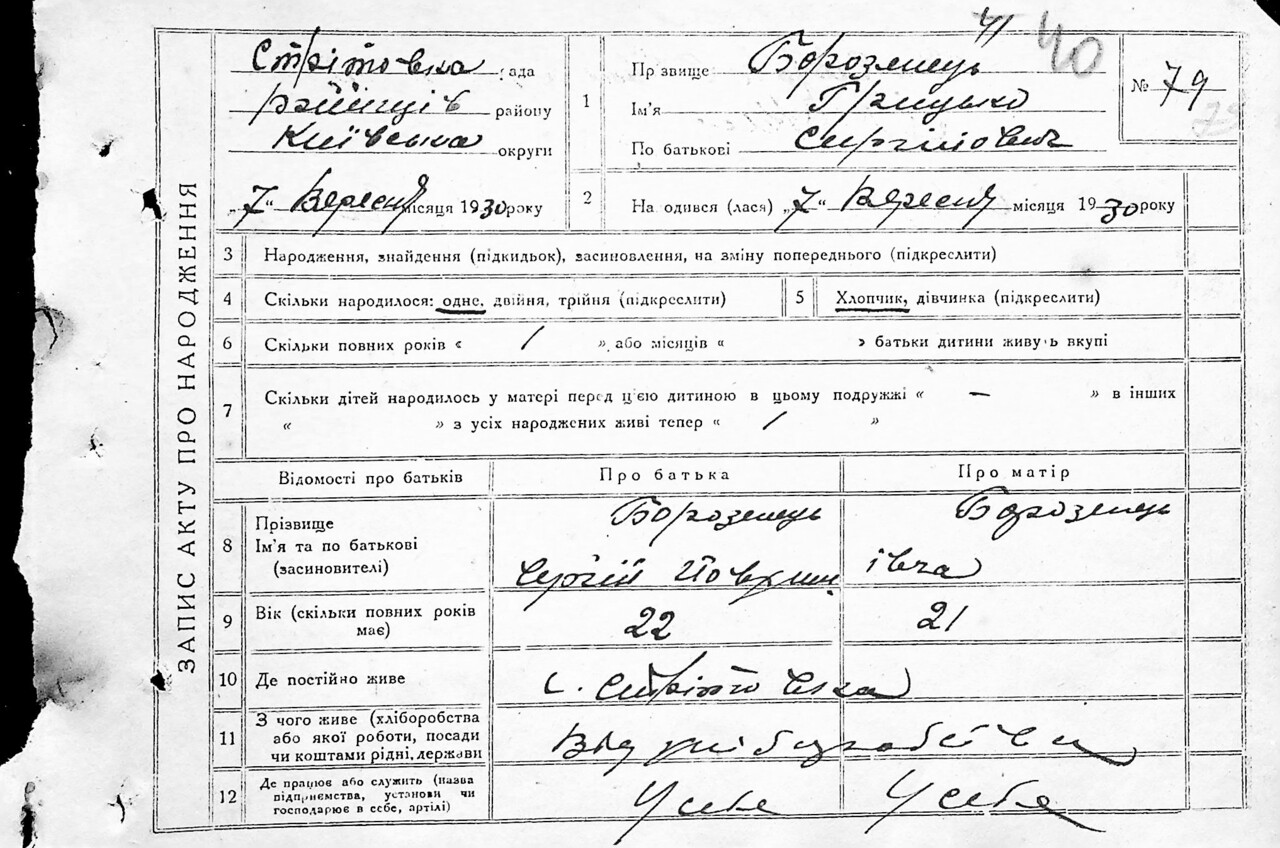 ЗАПИС АКТУ ПРО НАРОДЖЕННЯ
41 40
Стрітовка рада
району
Київська округи
„7“ Вересня місяця 1930 року
1
Прізвище Борозенець
Ім'я Грицько
По батькові Сиргійович
№ 79
79
2 На одився (лася) „7“ Вересня місяця 1930 року
3 Народження, знайдення (підкидьок), засиновлення, на зміну попереднього (підкреслити)
4 Скільки народилося: одне, двійня, трійня (підкреслити)
5 Хлопчик, дівчинка (підкреслити)
6 Скільки повних років « / » або місяців « » батьки дитини живуть вкупі
7 Скільки дітей народилось у матері перед цією дитиною в цьому подружжі « — » в інших
« » з усіх народжених живі тепер « / »
Відомості про батьків Про батька Про матір
8 Прізвище
Ім'я та по батькові
(засиновителі)
Борозенець Борозенець
Сергій
9 Вік (скільки повних років
має)
22 21
10 Де постійно живе с. Стрітовка
11 З чого живе (хліборобства
або якої роботи, посади
чи коштами рідні, держави
Від хліборобства
12 Де працює або служить (назва
підприємства, установи чи
господарює в себе, артілі)
У себе У себе